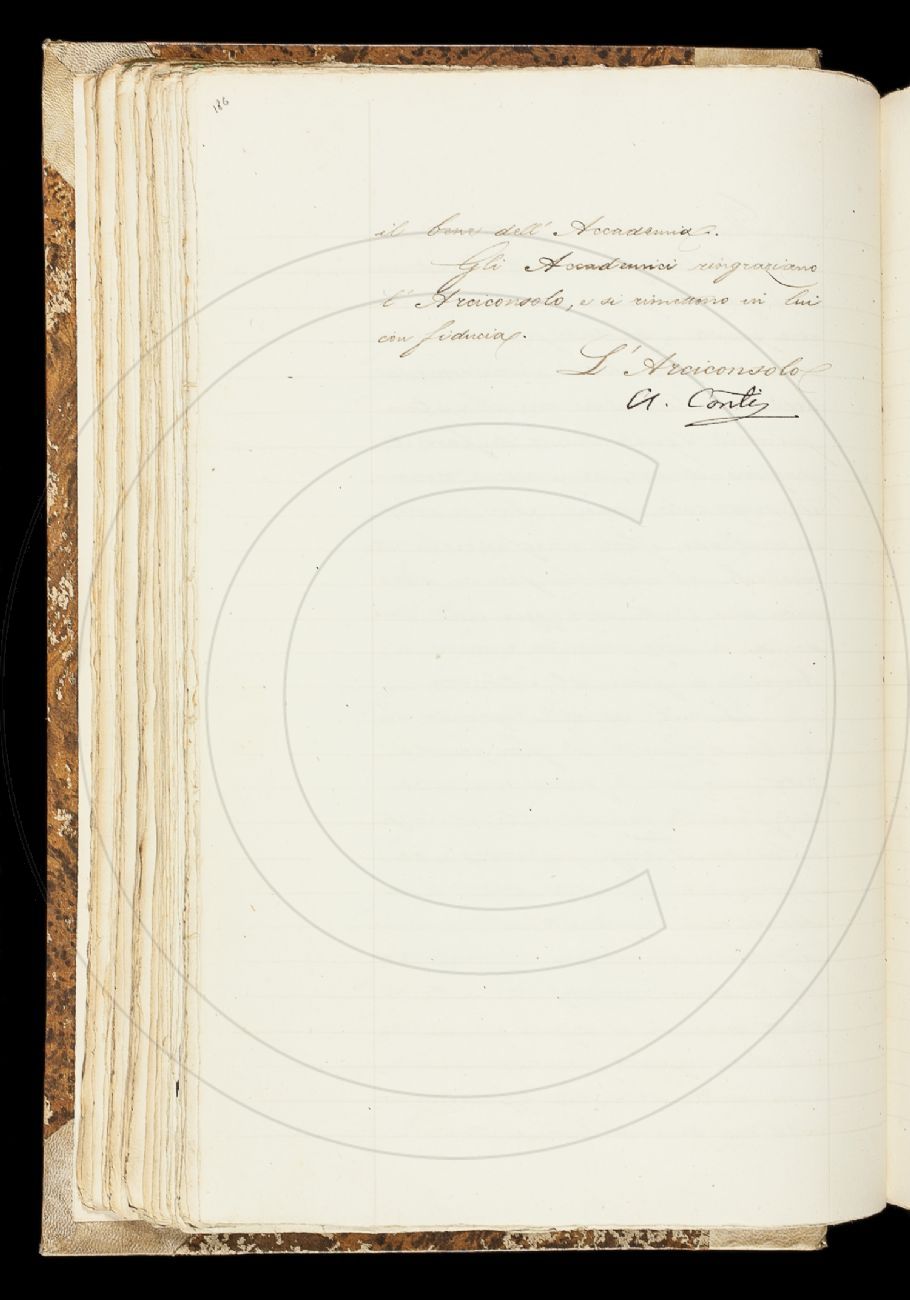 186
il bene dell' Accademia.
Gli Accademici ringraziano
l' Arciconsolo, e si rimettono in lui
con fiducia.
L' Arciconsolo
A. Conti